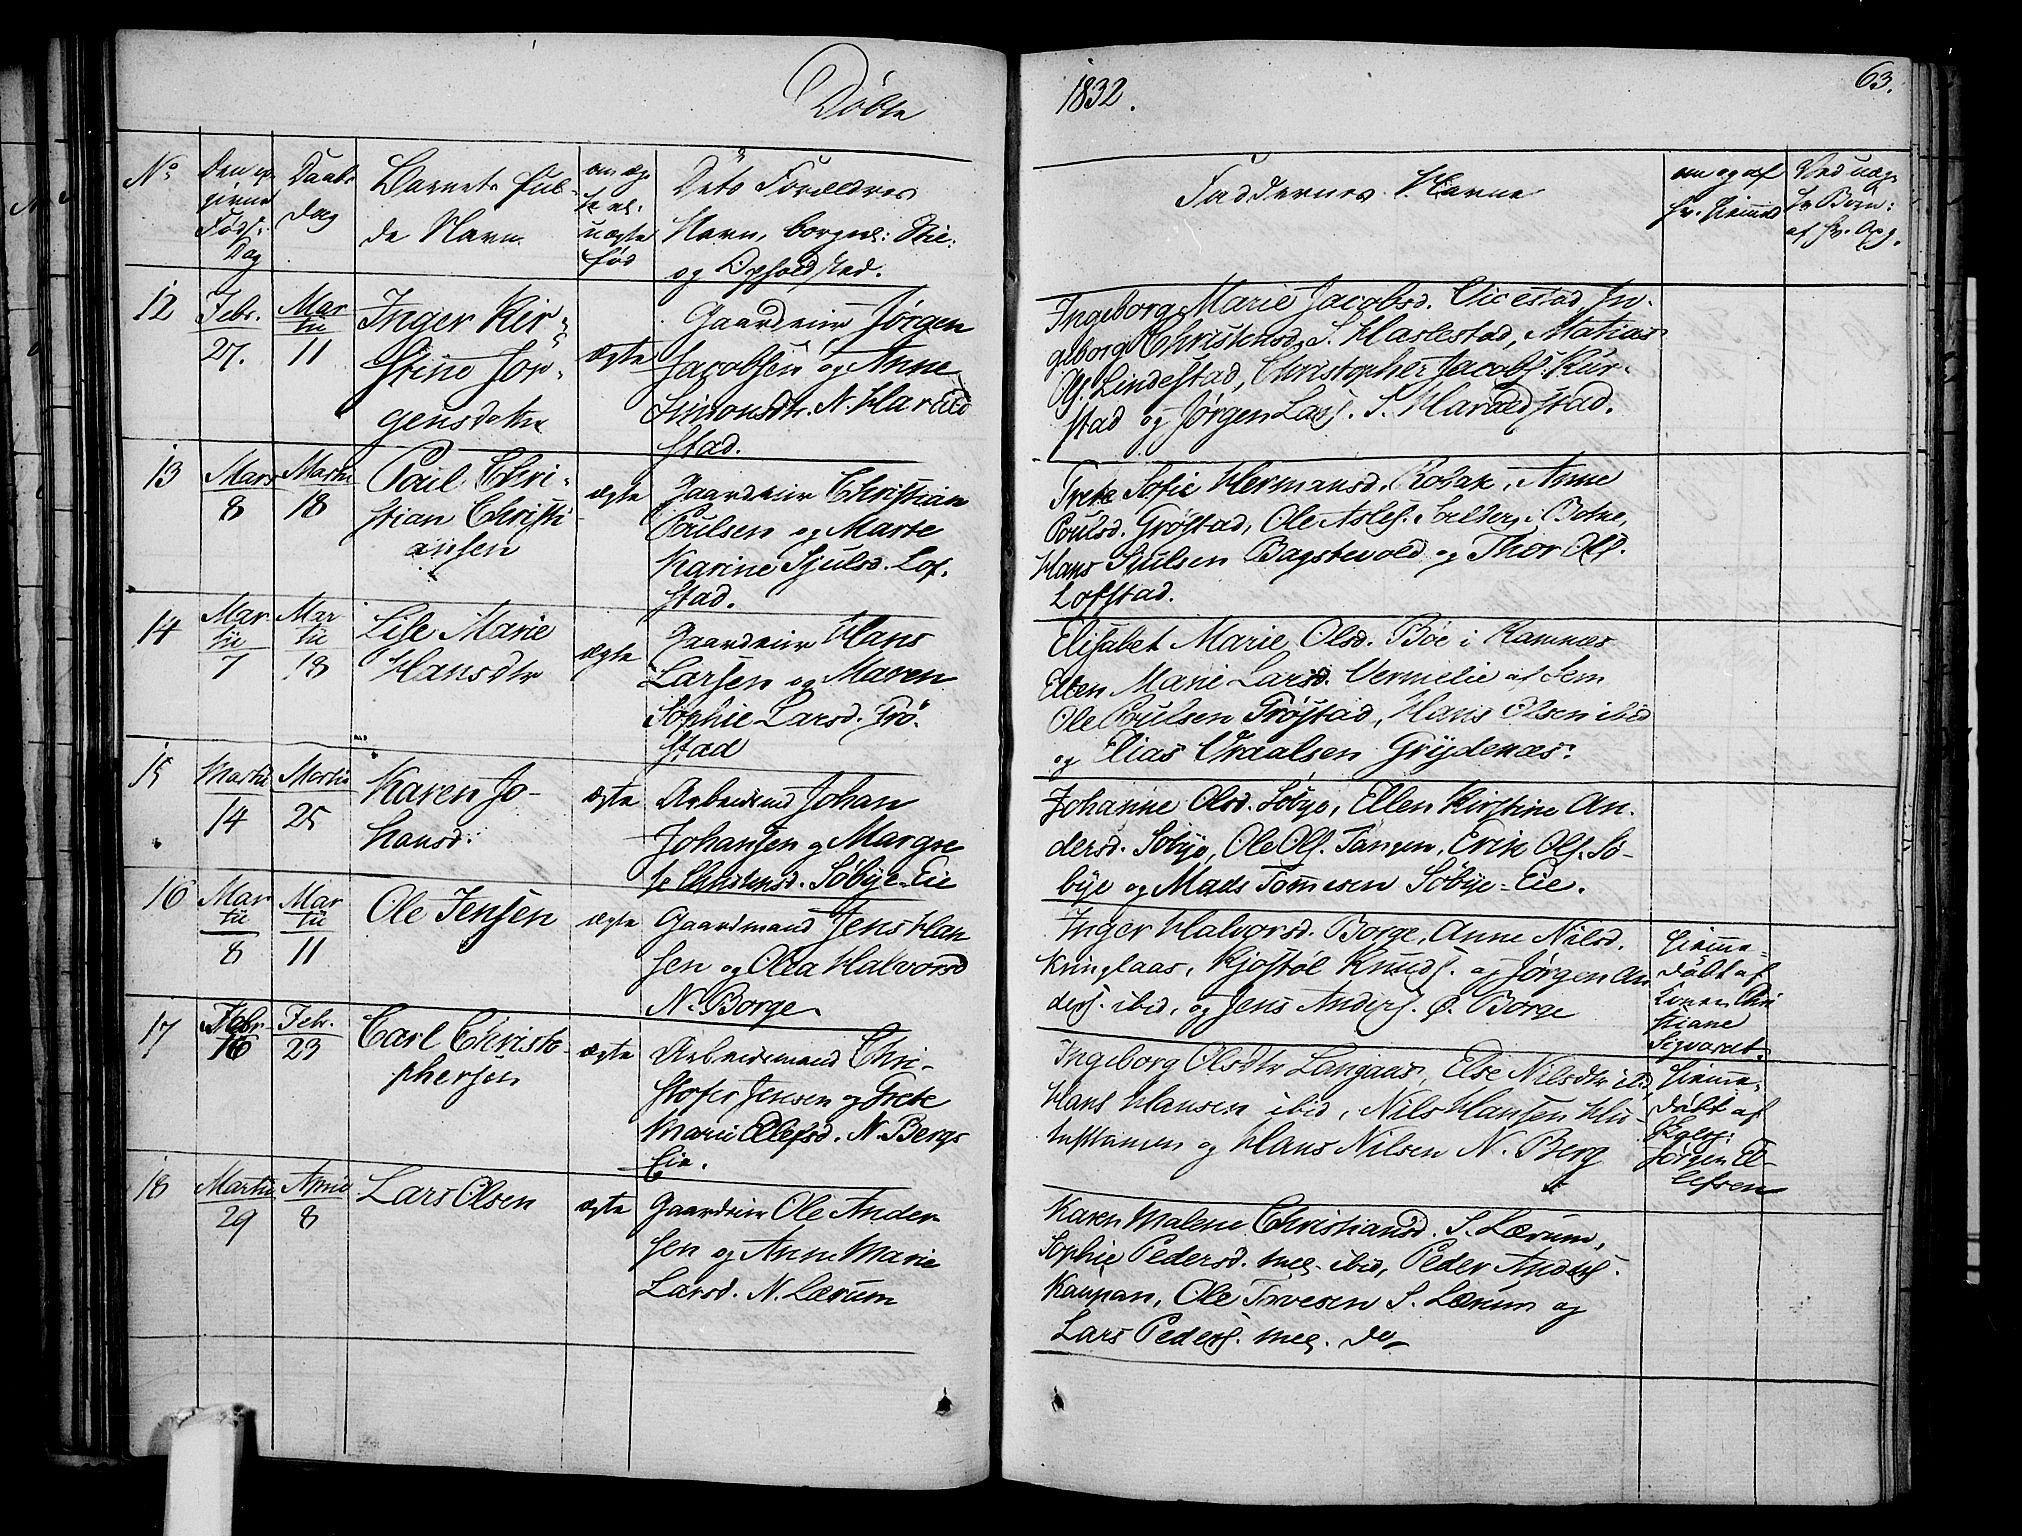 Döbte
1832.
63.
No
Den op
givne
Föds:
Dag
Daabs
Dag
Barnets ful-
de Navn
om æg
te el.
uægte
föd
Dets Forældres
Navn, borgerl: Stil:
og Opholdsted.
Faddernes Navne
om og af
hv. hiemmed
Ved uæg
te Börn:
af hv. Opg.
12
Febr.
27.
Mar
tii
11
Inger Kir-
stine Jör-
gensdatter
ægte
Gaardeier Jörgen
Jacobsen og Anne
Simonsdtr. N. Harald
stad.
Ingeborg Marie Jacobsd. In-
geborg Christensd. S. Haslestad, Matias
Ols. Lindestad, Christopher Jacobs.
stad og Jörgen Lars. S. Haraldstad.
13
Mars
8
Martii
18
Poul Chri-
stian Christi
ansen
ægte
Gaardeier Christian
Poulsen og Marte
Karine Hjulsd. Lof-
stad.
Grete Sofie Hermansd. Anne
Poulsd. Tröstad, Ole i Botne,
Hans og Thor Ols.
Lofstad.
14
Mar
tii
7
Mar
tii
18
Lise Marie
Hansdtr
ægte
Gaardeier Hans
Larsen og Maren
Sophie Larsd. Trö-
stad
Elisabet Marie Olsd. Böe i Ramnæs
Ellen Marie Larsd. Vermelie af Sem
Ole Poulsen Tröstad, Hans Olsen ibid
og Elias Grydenæs.
15
Martii
14
Martii
25
Karen Jo-
hansd:
ægte
Arbeidsmd Johan
Johansen og Margre
te Christensd. Söbye-Eie
Johanne Olsd. Söbye, Ellen Kirstine An-
dersd. Söbye, Ole Ols. Tangen, Erik Ols. Sö-
bye og Mads Tommesen Söbye-Eie.
16
Mar
tii
8
Mar
tii
11
Ole Jensen
ægte
Gaardmand Jens Han
sen og Olea Halvorsd
N. Borge.
Inger Halvorsd. Borge, Anne Nilsd.
Kringlaas, Kjöstöl Knuds. og Jörgen An
ders. ibid, og Jens Anders. Ö. Borge
Hiemme-
döbt af
Konen Chri
stiane
Sigvardt.
17
Febr.
16
Febr.
23
Carl Christo-
phersen
ægte
Arbeidsmand Chri-
stofer Jensen og Grete
Marie Ellefsd. N. Bergs
Eie.
Ingeborg Olsdtr Langaas, Else Nilsdtr ibid,
Hans Hansen ibid, Nils Hansen
og Hans Nilsen N. Berg
Hiemme-
döbt af
Jörgen El-
lefsen
18
Martii
29
April
8
Lars Olsen
ægte
Gaardeier Ole Ander
sen og Anne Marie
Larsd. N. Lærum
Karen Malene Christiansd. S. Lærum,
Sophie Pedersd. ibid, Peder Anders.
Kaupan, Ole S. Lærum og
Lars Peders. do